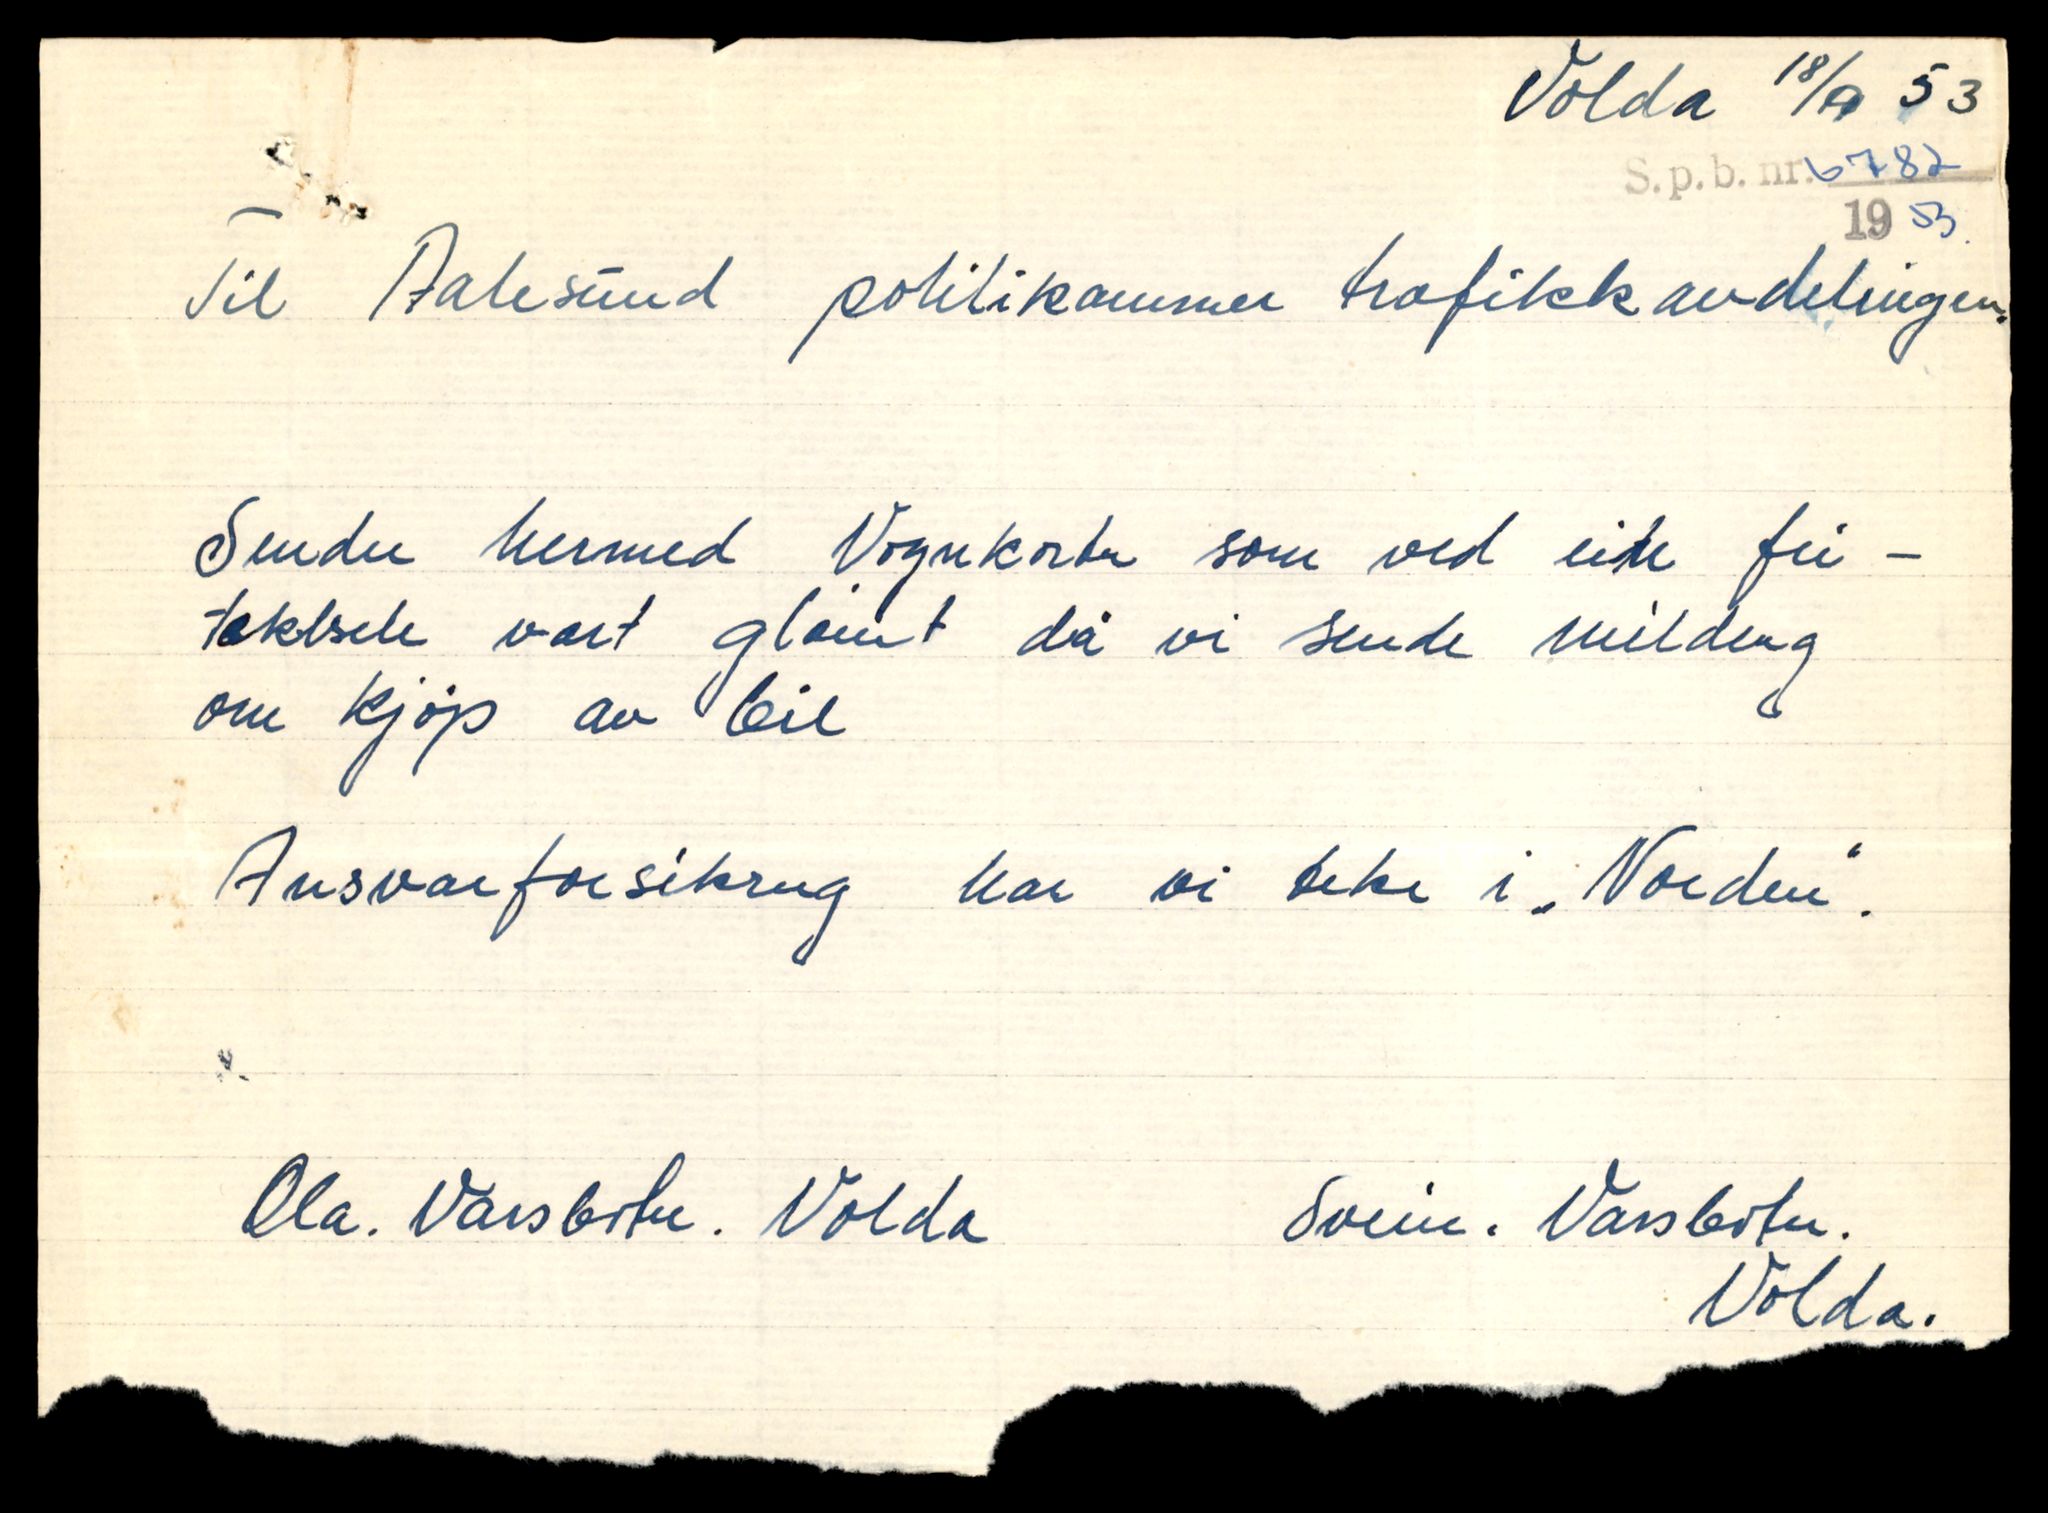 Volda 18/9 53
S.p.b. nr. 6782
1953.
Til Aalesund politikammer trafikkavdelingen.
Sender hermed Vognkorte som ved ein fei-
takelse vart gløimt då vi sende melding
om kjøp av bil
Ansvarforsikring har vi teke i „Norden".
Ola. Varsbotn. Volda Svein. Varsbotn.
Volda.